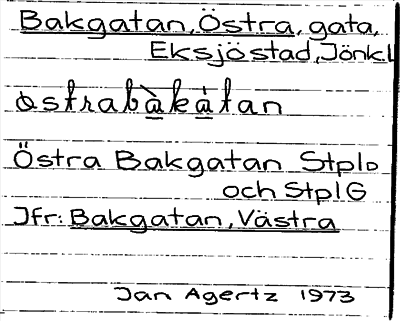 Bakgatan, Östra, gata,
Eksjöstad, Jönk.l
östrabàkàtan
Östra Bakgatan StplD
och StplG
Jfr: Bakgatan, Västra
Jan Agertz 1973